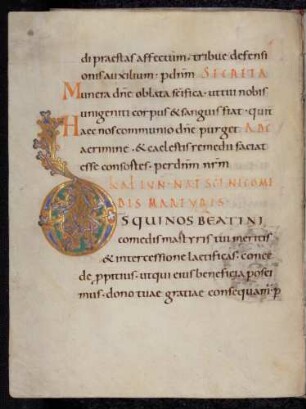 di praestas affectum · tribue defensi
onis auxilium · p dnm SECRETA
Munera dne oblata scifica · ut tui nobis
unigeniti corpus & sanguis fiat · qui
Haec nos communio dne purget A D C
a crimine · & caelestis remedii faciat
esse consortes · per dnm nrm
KAL IUN · NAT SCI NICOME
DIS MARTYRIS
DS QUI NOS BEATI NI
comedis martyris tui meritis
& intercessione laetificas · conce
de propitius · ut qui eius beneficia posci
mus · dono tuae gratiae consequamur · p